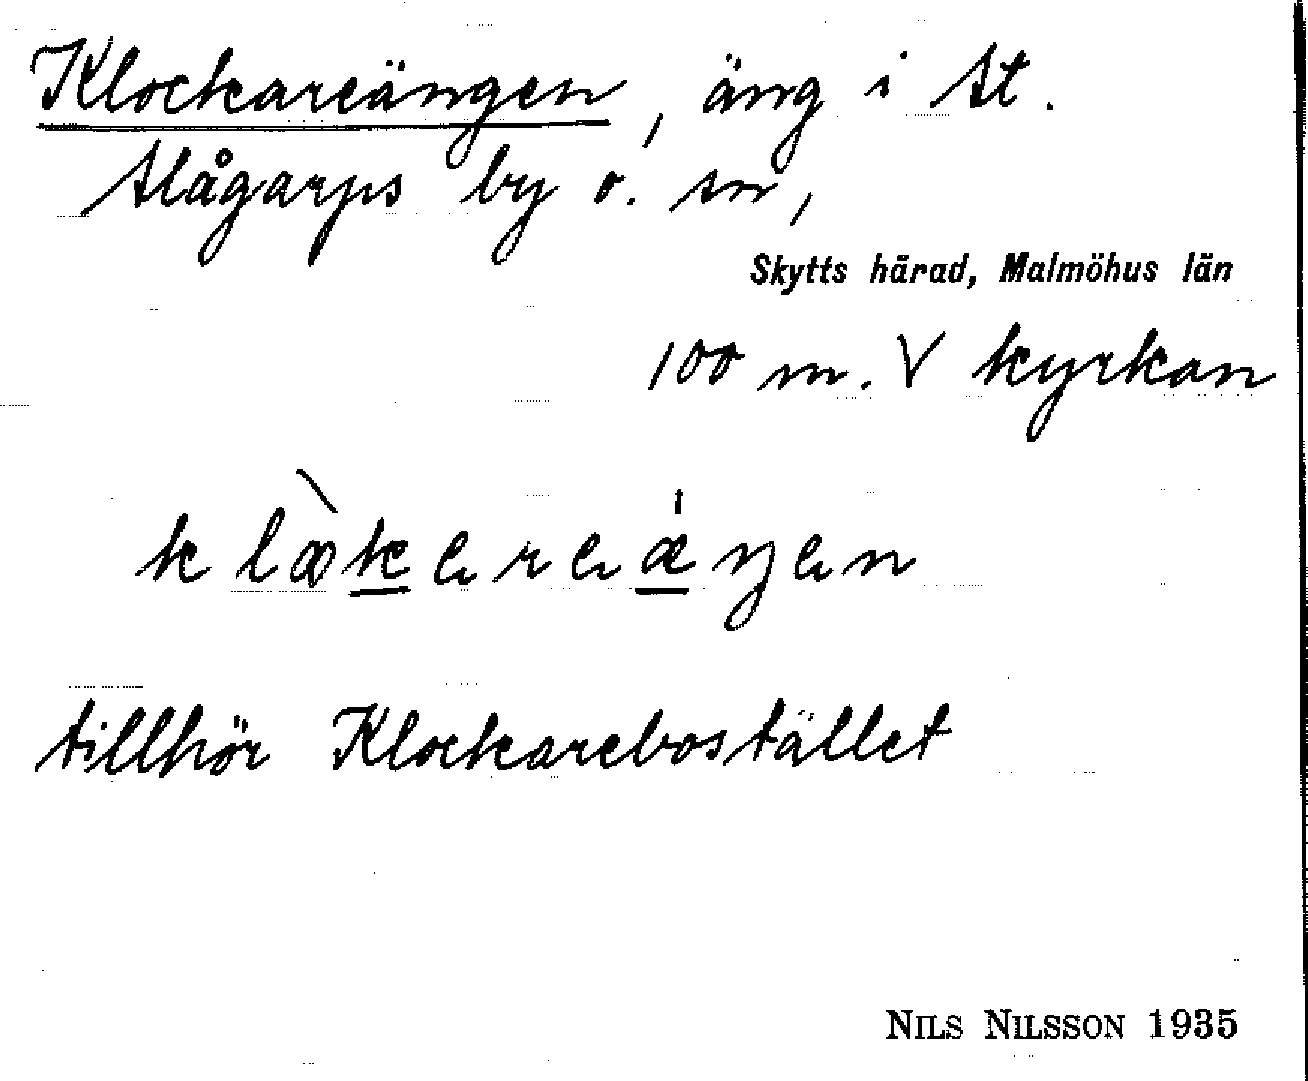 Klockareängen, äng i St.
Slågarps by o. sn,
Skytts härad, Malmöhus län
100 m. V kyrkan
tillhör Klockarebostället
NILS NILSSON 1935